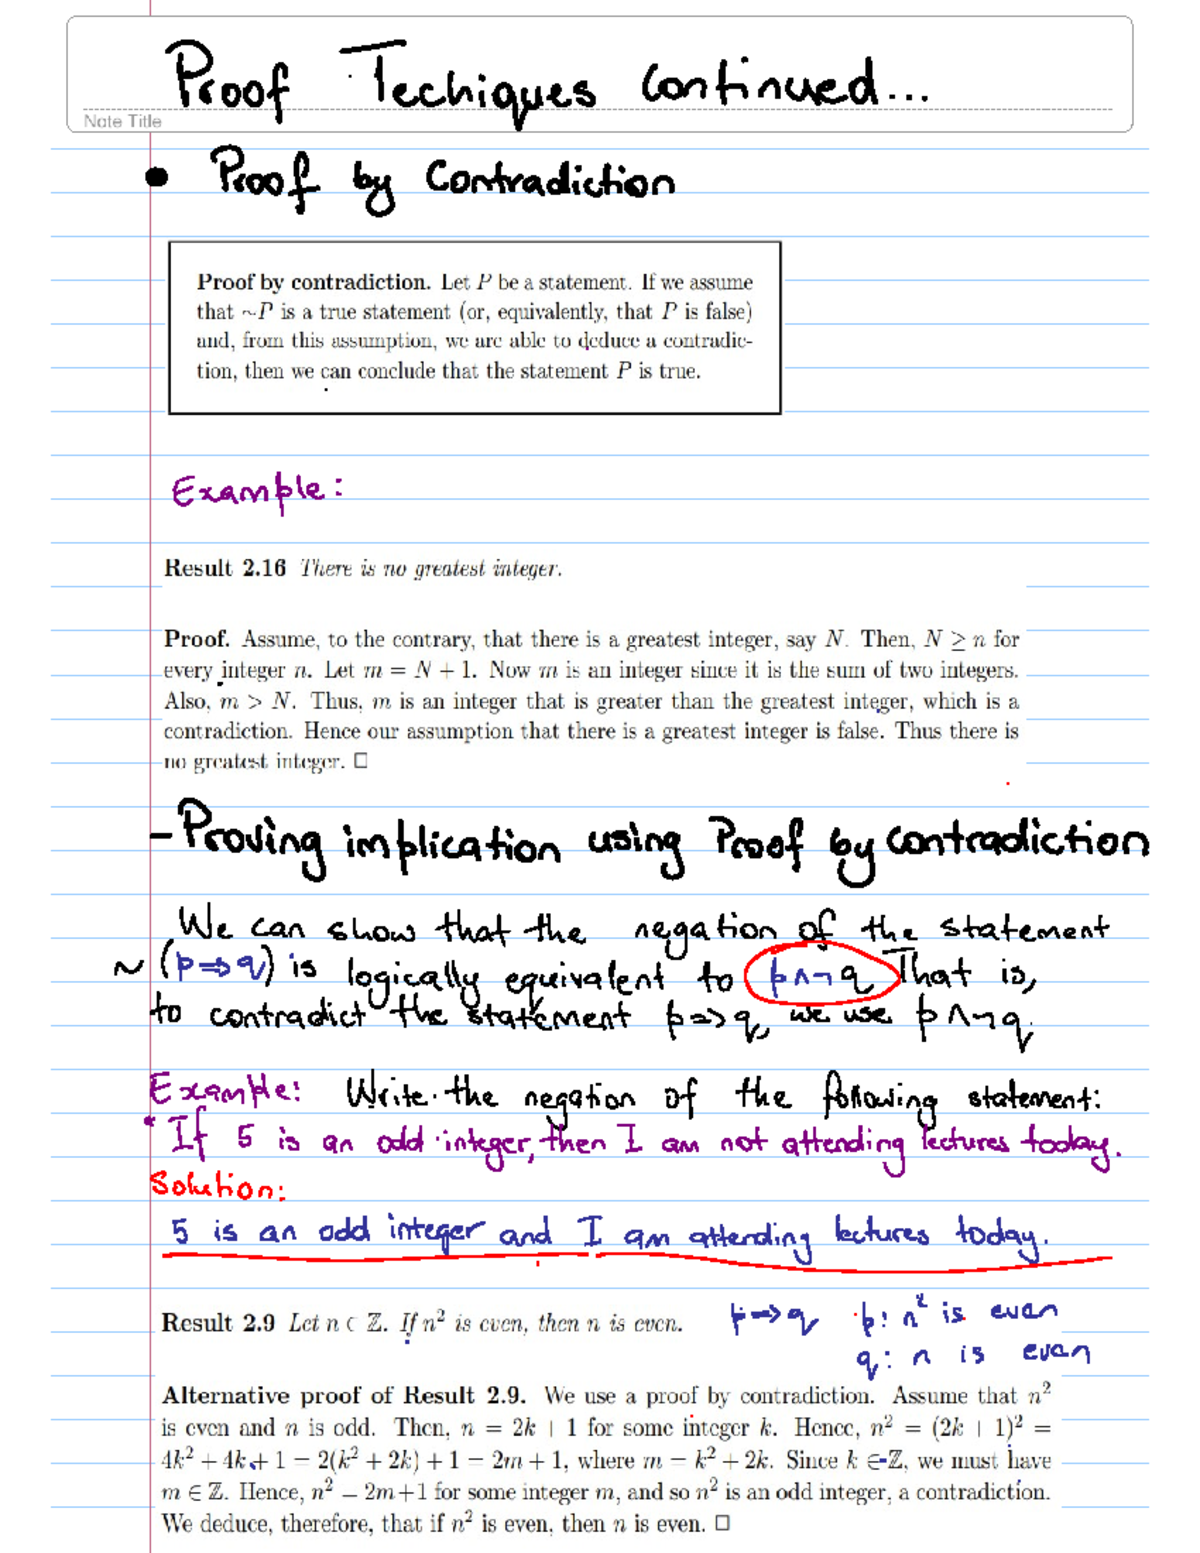 Proof Techiques Continued...
Note Title
• Proof by Contradiction
Proof by contradiction. Let P be a statement. If we assume
that ~P is a true statement (or, equivalently, that P is false)
and, from this assumption, we are able to deduce a contradic-
tion, then we can conclude that the statement P is true.
Example:
Result 2.16 There is no greatest integer.
Proof. Assume, to the contrary, that there is a greatest integer, say N. Then, N ≥ n for
every integer n. Let m = N + 1. Now m is an integer since it is the sum of two integers.
Also, m > N. Thus, m is an integer that is greater than the greatest integer, which is a
contradiction. Hence our assumption that there is a greatest integer is false. Thus there is
no greatest integer. □
- Proving implication using Proof by contradiction
We can show that the negation of the statement
~ (p ⇒ q) is logically equivalent to p ∧ ¬ q That is,
to contradict the statement p ⇒ q, we use p ∧ ¬ q.
Example: Write the negation of the following statement:
* If 5 is an odd integer, then I am not attending lectures today.
Solution:
5 is an odd integer and I am attending lectures today.
Result 2.9 Let n ∈ ℤ. If n² is even, then n is even. p ⇒ q p: n² is even
q: n is even
Alternative proof of Result 2.9. We use a proof by contradiction. Assume that n²
is even and n is odd. Then, n = 2k + 1 for some integer k. Hence, n² = (2k + 1)² =
4k² + 4k + 1 = 2(k² + 2k) + 1 = 2m + 1, where m = k² + 2k. Since k ∈ ℤ, we must have
m ∈ ℤ. Hence, n² = 2m + 1 for some integer m, and so n² is an odd integer, a contradiction.
We deduce, therefore, that if n² is even, then n is even. □